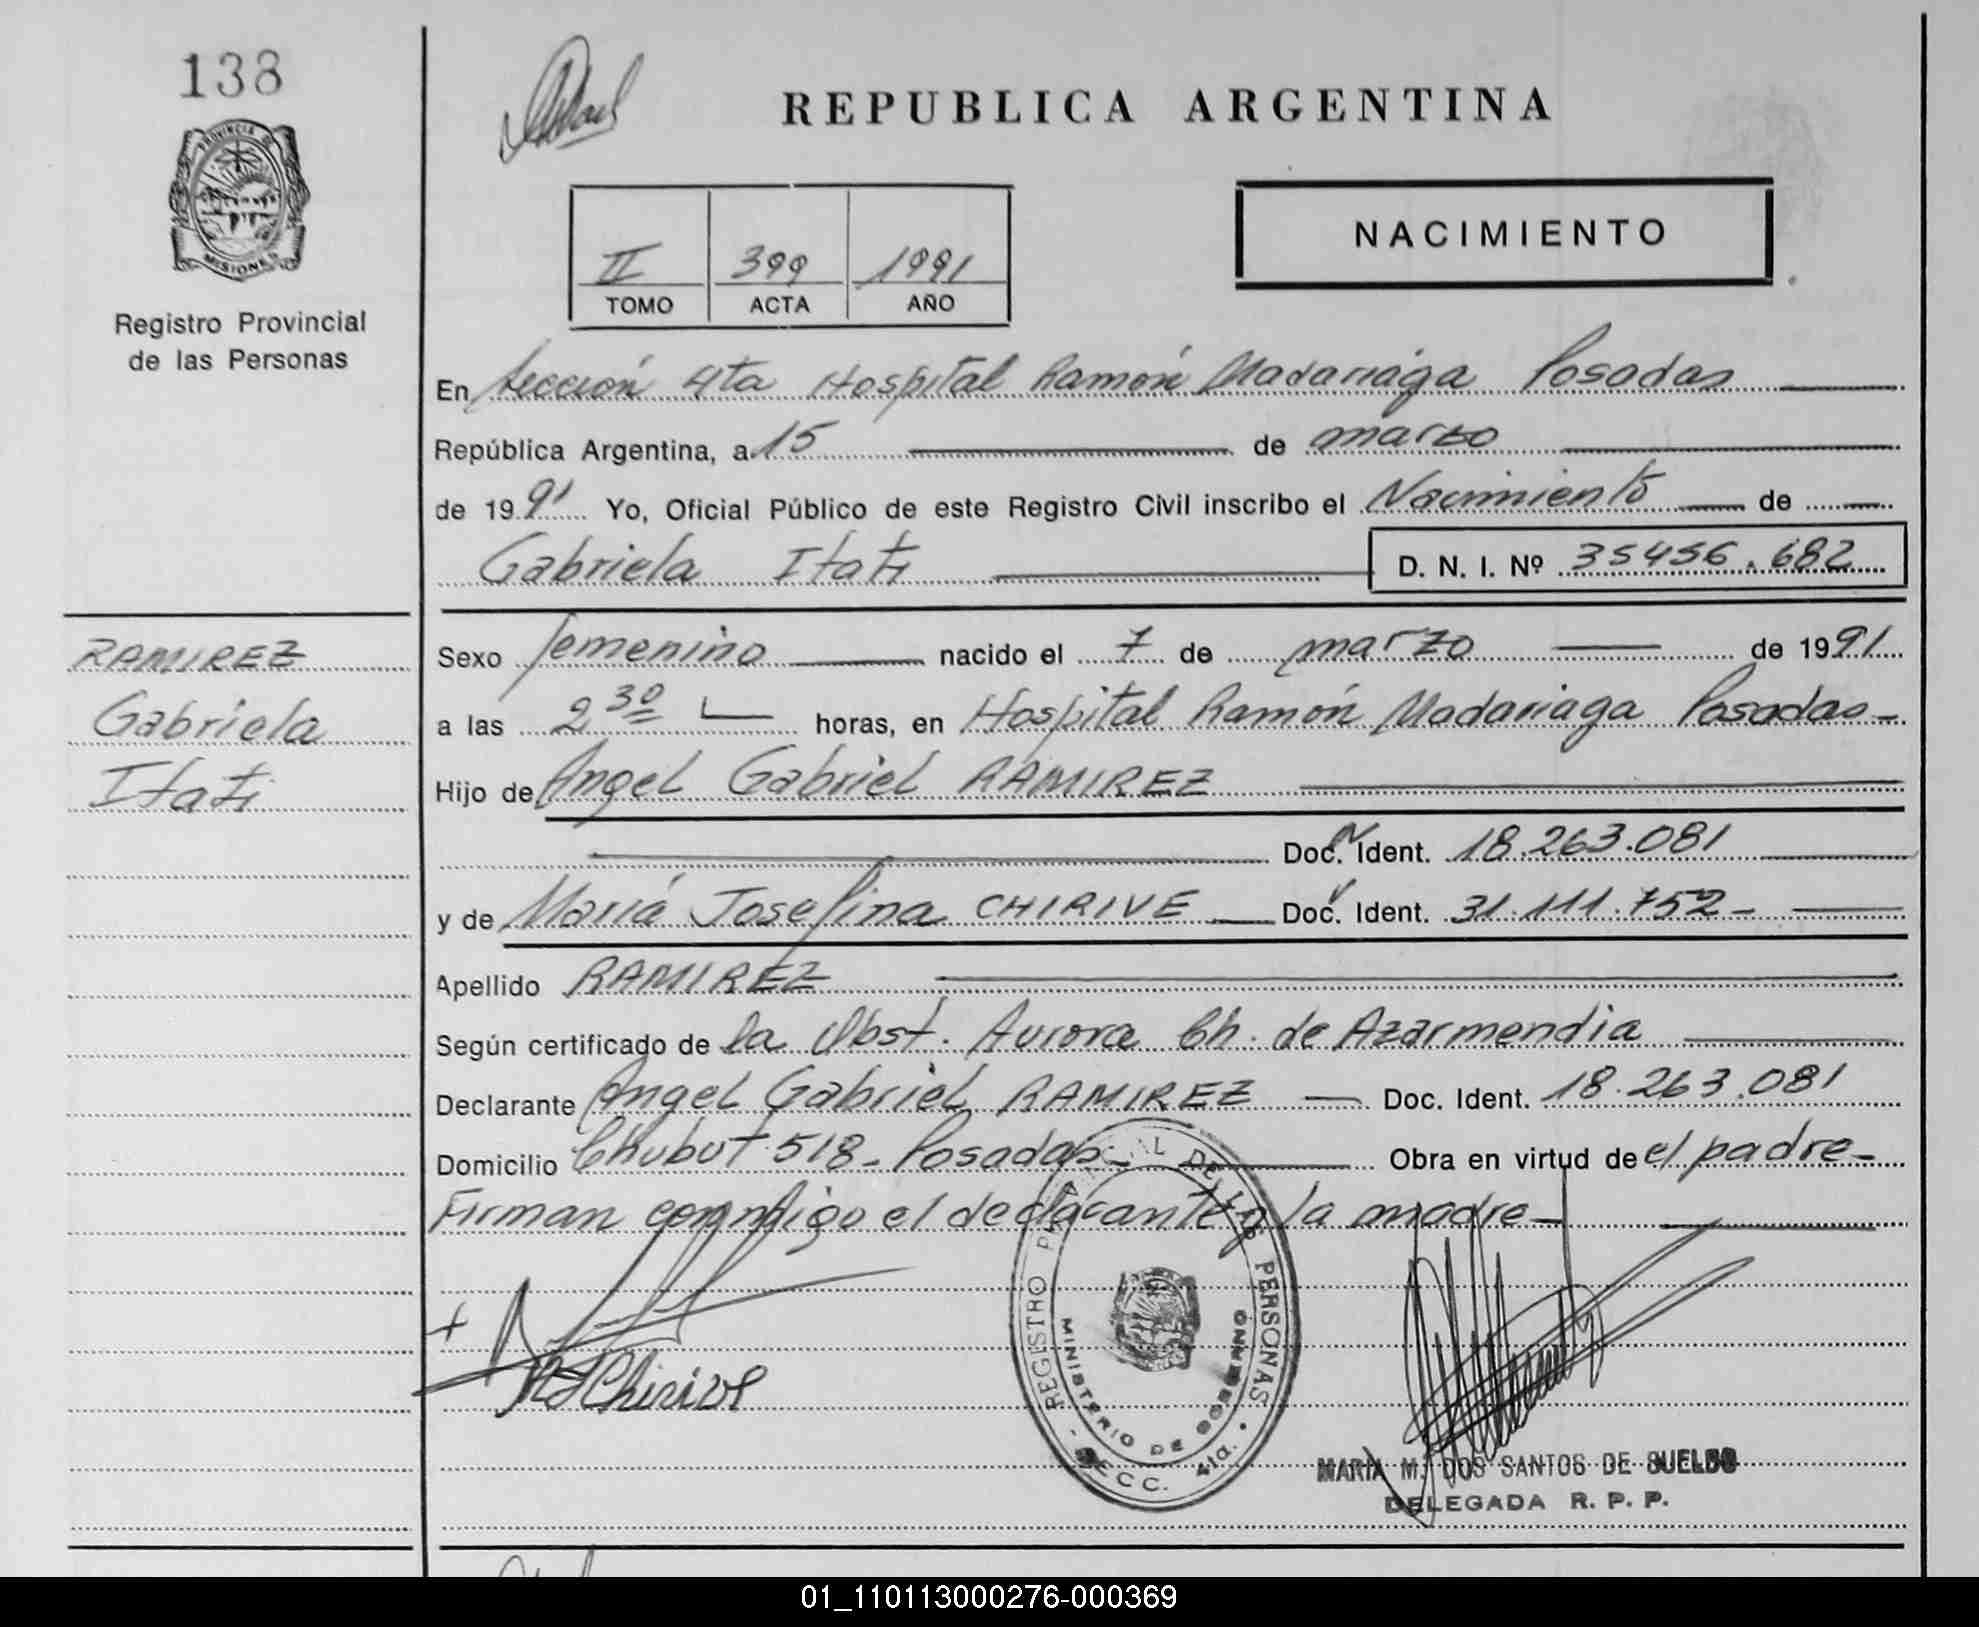 138
PROVINCIA DE
MISIONES
Registro Provincial
de las Personas
REPUBLICA ARGENTINA
NACIMIENTO
II 399 1991
TOMO ACTA AÑO
En Sección 4ta Hospital Ramón Madariaga Posadas
República Argentina, a 15 de marzo
de 1991 Yo, Oficial Público de este Registro Civil inscribo el Nacimiento de
Gabriela Itatí D. N. I. Nº 35456.682
RAMIREZ
Gabriela
Itatí
Sexo femenino nacido el 7 de marzo de 1991
a las 2 30 horas, en Hospital Ramón Madariaga Posadas-
Hijo de Angel Gabriel RAMIREZ
Doc. Ident. 18.263.081
y de María Josefina CHIRIVE Doc. Ident. 31.111.752-
Apellido RAMIREZ
Según certificado de la Obst. Aurora Ch. de Azarmendia
Declarante Angel Gabriel RAMIREZ Doc. Ident. 18.263.081
Domicilio Chubut 518- Posadas- Obra en virtud de el padre-
Firman conmigo el declarante y la madre-
MJChirive
REGISTRO PROVINCIAL DE LAS PERSONAS
MINISTERIO DE GOBIERNO
SECC. 4ta.
MARIA M. DOS SANTOS DE SUELDO
DELEGADA R. P. P.
01_110113000276-000369